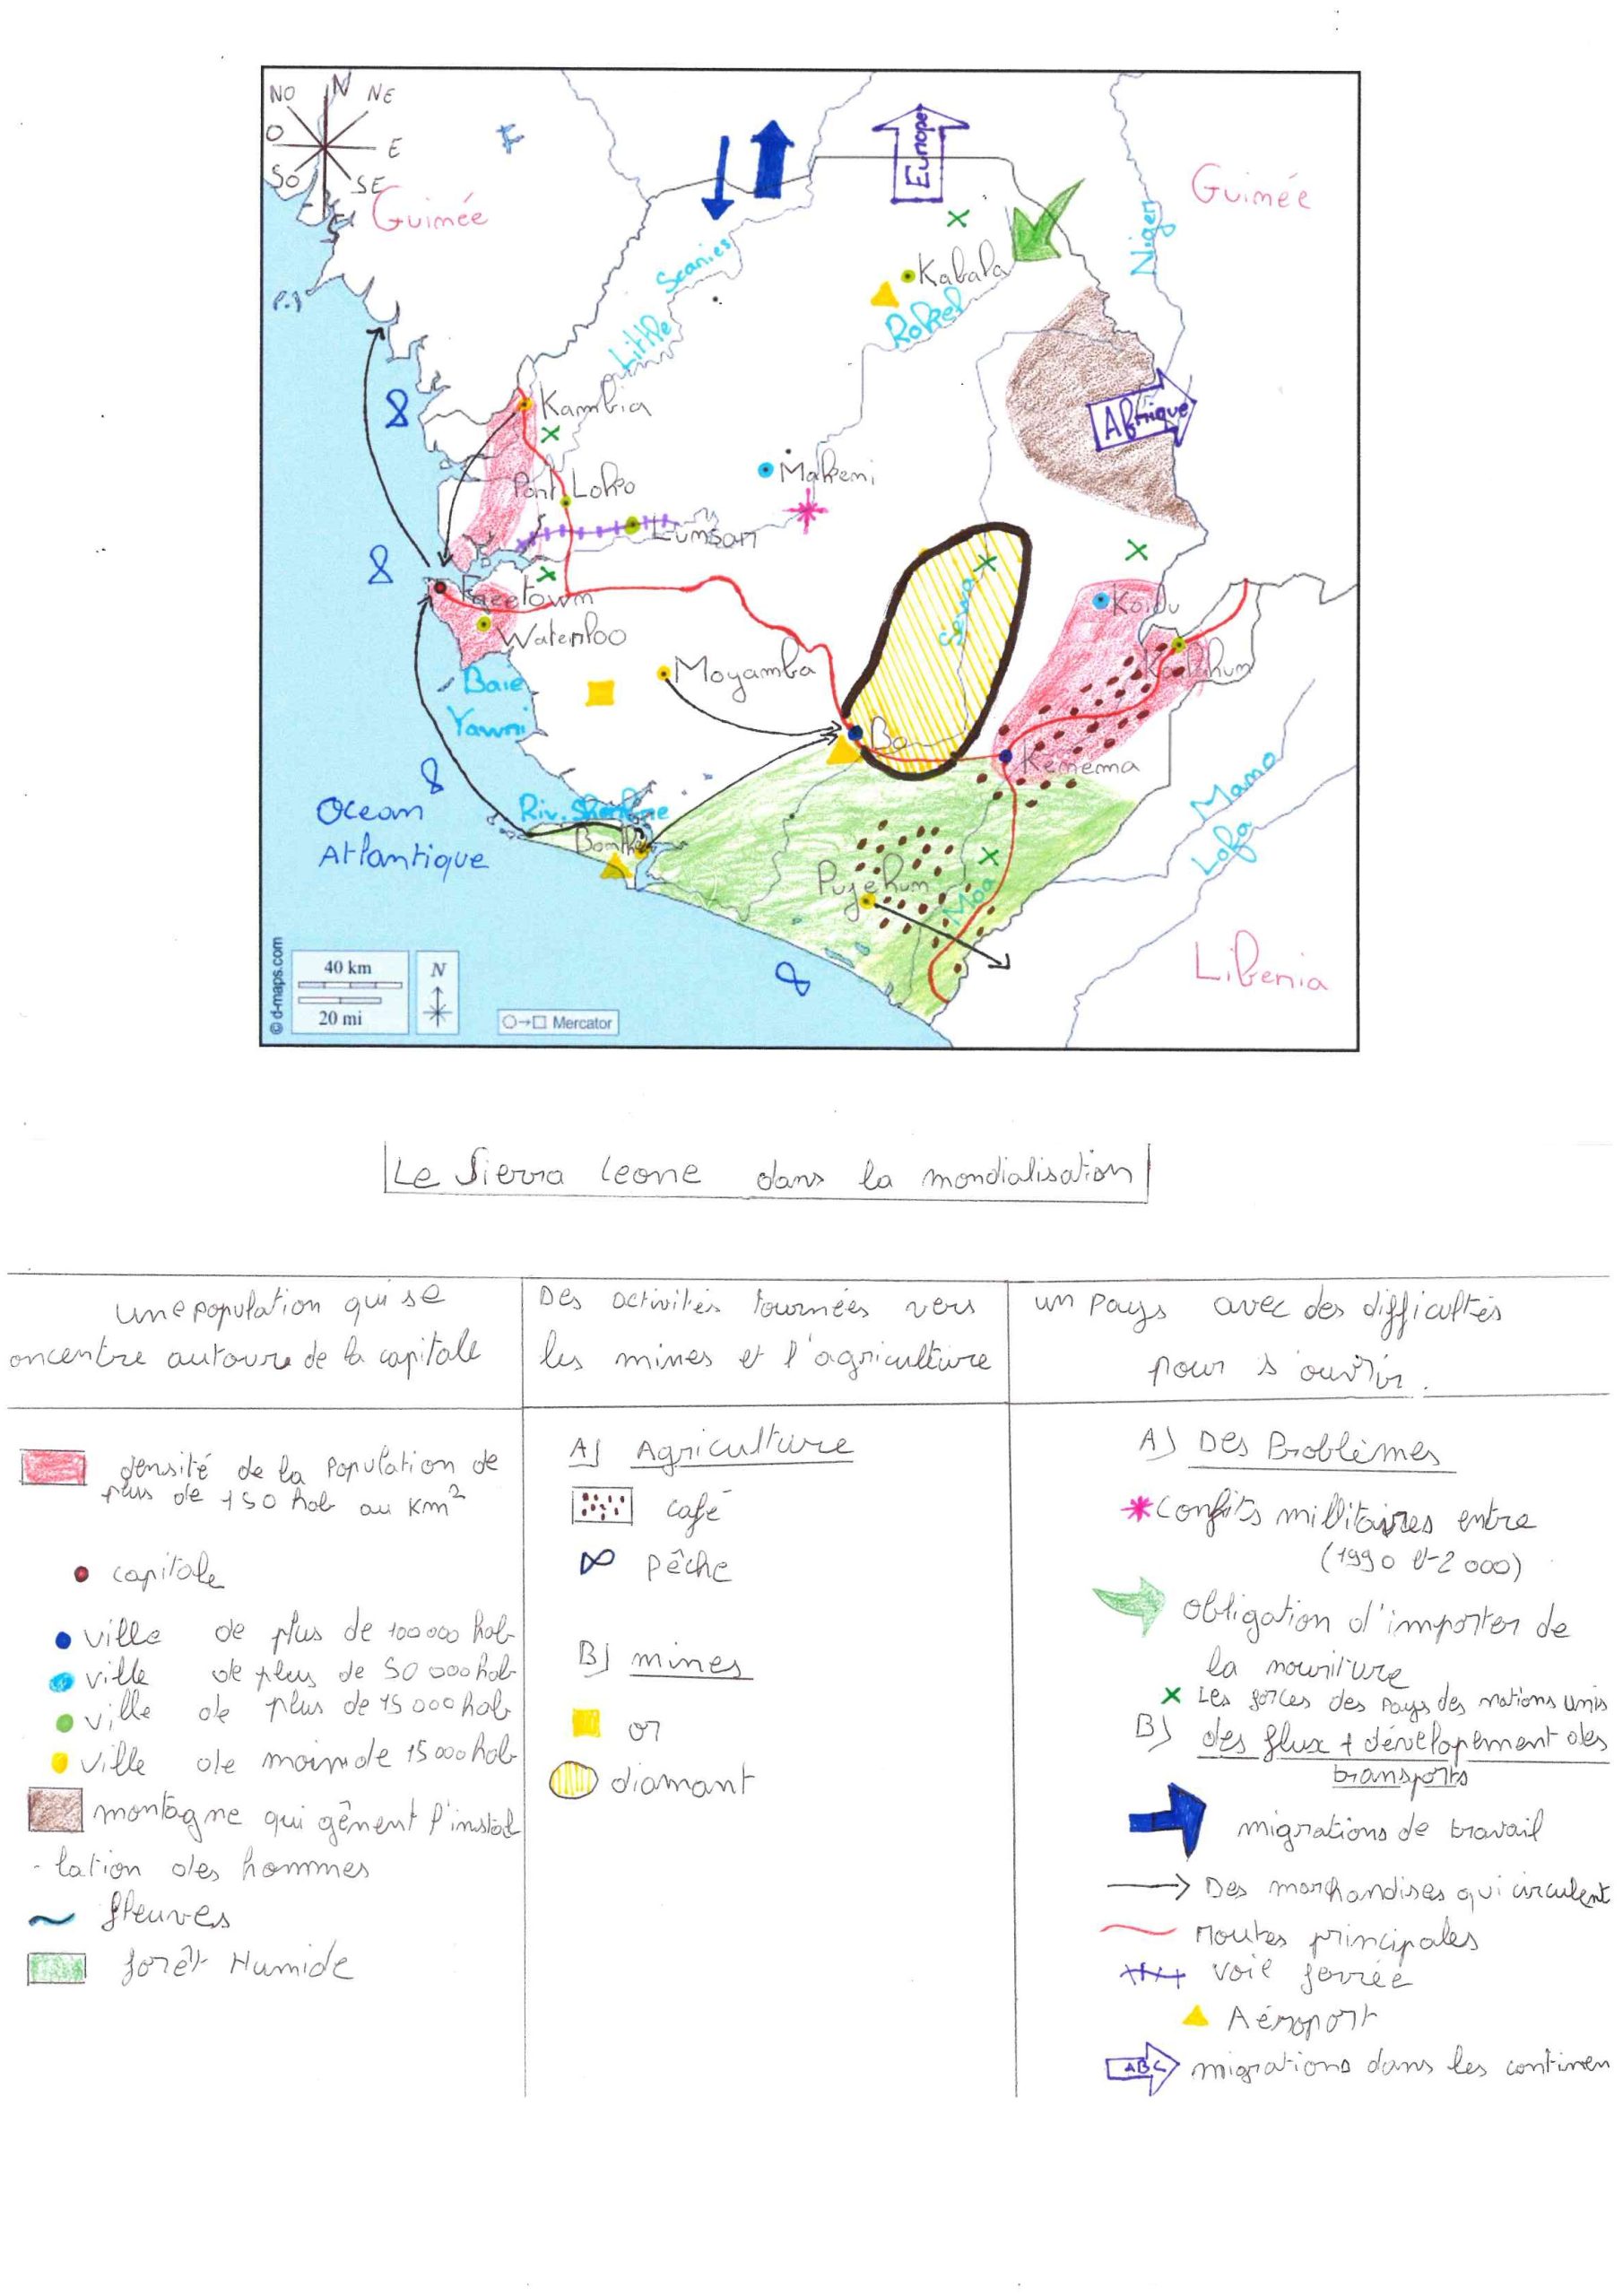 NO N NE
O E
SO SE
Guimée
Guimée
Europe
Niger
Little Scanies
Kabala
Rokel
Kambia
Afrique
Makeni
Port Loko
Lumsan
Freetown
Waterloo
Sewa
Koidu
Kailihum
Baie
Yawni
Moyamba
Bo
Kenema
Ocean
Atlantique
Riv. Sherbne
Bomthe
Pujehum
Moa
Mamo
Lofa
Libenia
© d-maps.com
40 km
20 mi
N
Mercator
Le Sierra leone dans la mondialisation
une population qui se
oncentre autoure de la capitale
densité de la population de
plus de 150 hab au Km²
capitale
ville de plus de 100 000 hab
ville de plus de 50 000 hab
ville de plus de 15 000 hab
ville de moins de 15 000 hab
montagne qui gênent l'instal
-lation des hommes
fleuves
forêt Humide
Des activités tournées vers
les mines et l'agriculture
A) Agriculture
café
Pêche
B) mines
or
diamant
un pays avec des difficultés
pour s'ouvrir.
A) Des Problèmes
conflits millitaires entre
(1990 et 2 000)
obligation d'importer de
la nouriture
Les forces des pays des nations unis
B) des flux + dévelopement des
transports
migrations de travail
Des marchandises qui circulent
Routes principales
voie ferrée
Aéroport
ABC migrations dans les continen